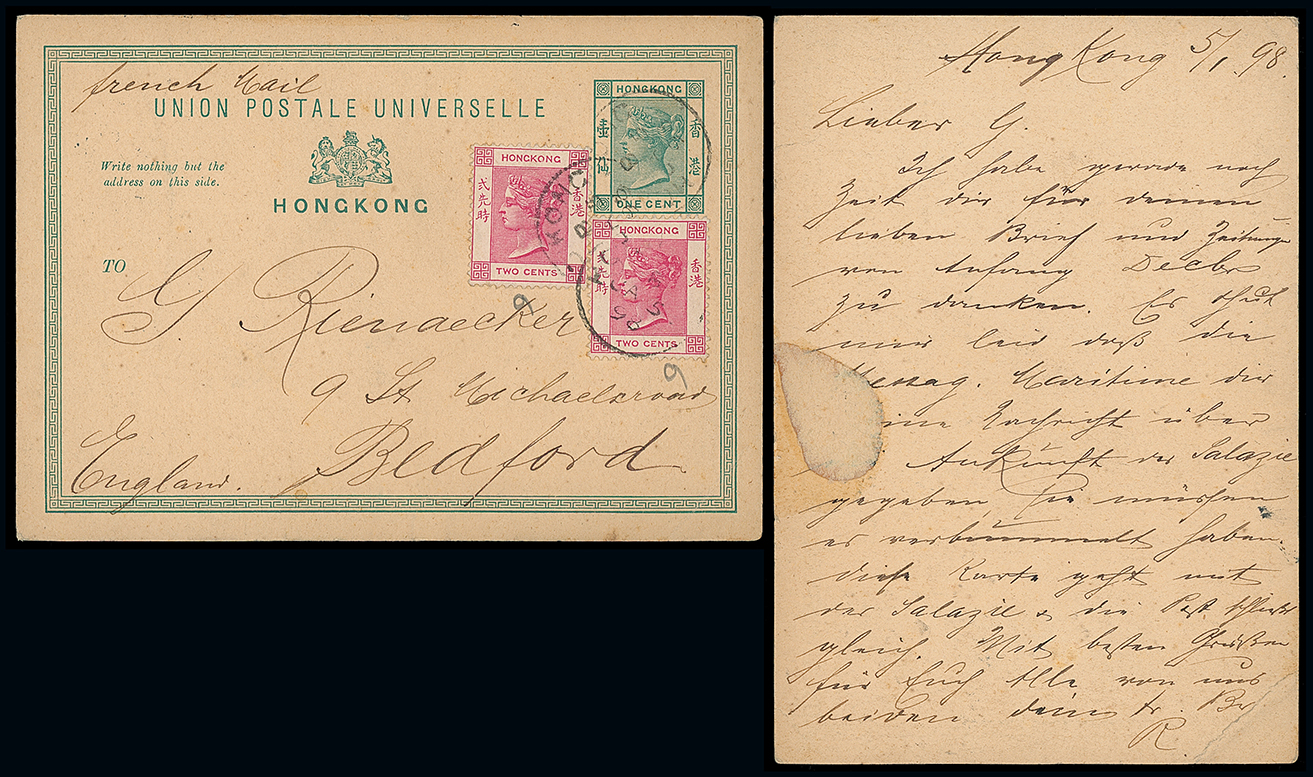 french Mail
UNION POSTALE UNIVERSELLE
Write nothing but the
address on this side.
HONGKONG
TO
G. Rienaecker
9 St Michaelsroad
BEDFORD
England.
HONGKONG
壹仙
香港
ONE CENT
HONGKONG
弍先時
香港
TWO CENTS
HONGKONG
弍先時
香港
TWO CENTS
Hong Kong 5/1 98.
Lieber G.
Ich habe gerade noch
Zeit dir für deinen
lieben Brief und Zeitunge
von Anfang Decbr
zu danken. Es thut
mir leid daß die
Messag. Maritime dir
eine Nachricht über
Ankunft der Salazie
gegeben, Sie müssen
es verbummelt haben.
diese Karte geht mit
der Salazie & die Post schließt
gleich. Mit besten Grüßen
für Euch Alle von uns
beiden dein tr. Br
R.